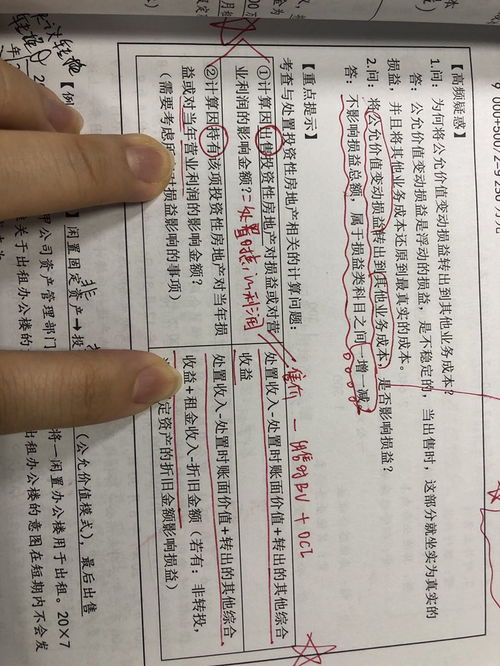 【高频疑惑】
1.问：为何将公允价值变动损益转出到其他业务成本？
答：公允价值变动损益是浮动的损益，是不稳定的，当出售时，这部分就坐实为真实的
损益，并且将其他业务成本还原到最真实的成本。
2.问：将公允价值变动损益转出到其他业务成本，是否影响损益？
答：不影响损益总额，属于损益类科目之间一增一减。
【重点提示】
考查与处置投资性房地产相关的计算问题：
①计算因出售投资性房地产对损益或对营
业利润的影响金额？=处置时接 in利润
处置收入-处置时账面价值+转出的其他综合
收益
售价 - 售时BV + OCI
②计算因持有该项投资性房地产对当年损
益或对当年营业利润的影响金额？
（需要考虑 对损益影响的事项）
处置收入-处置时账面价值+转出的其他综合
收益+租金收入-折旧金额（若有：非转投，
定资产的折旧金额影响损益）
【例
】闲置固定资产→投
非
（公允价值模式），最后出售
公司资产管理部门
将一闲置办公楼用于出租。20×7
关于出租办公楼的
出租办公楼的意图在短期内不会发